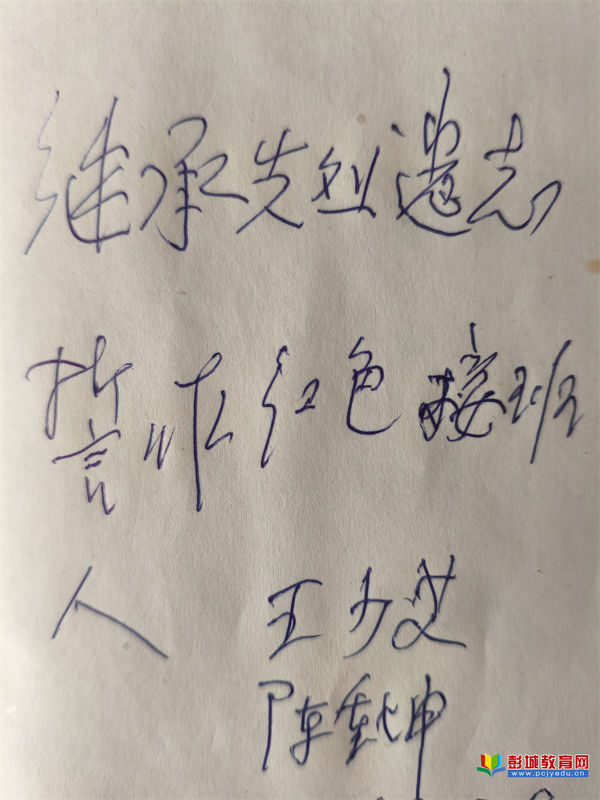 继承先烈遗志
誓作红色接班
人 王少艾
陈乾坤
彭城教育网
www.pcjyedu.cn